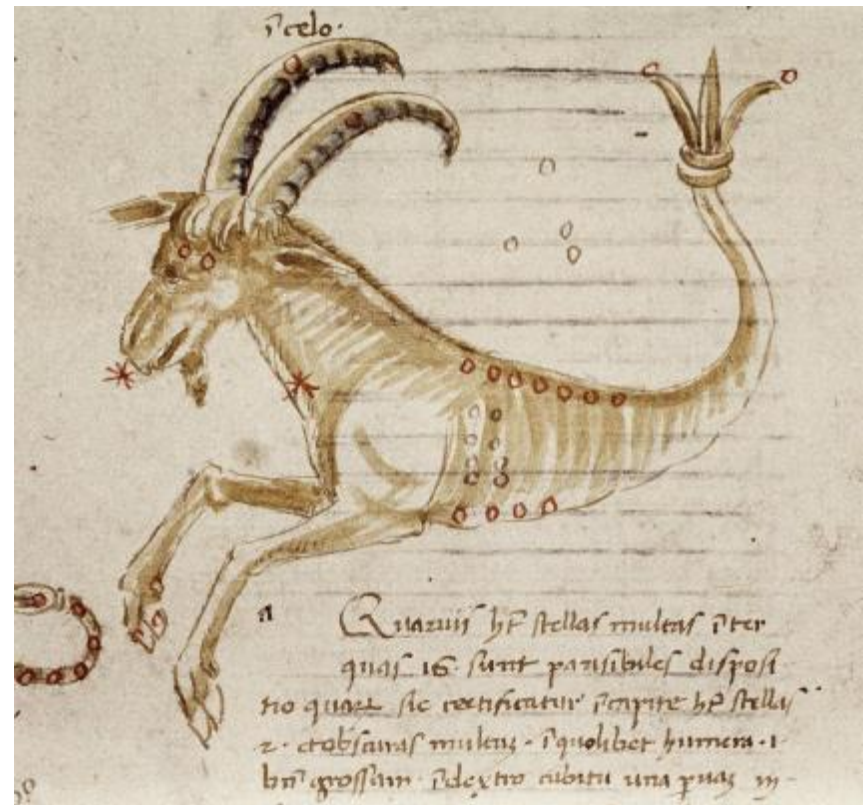 ī celo.
a
Quarius hʒ stellas multas īter
quas 16 sunt passibiles disposi
tio quarʒ sic certificatur ī capite hʒ stellas
2. et obscuras multas. ī quolibet humero. 1
bñ grossam. ī dextro cubitu una